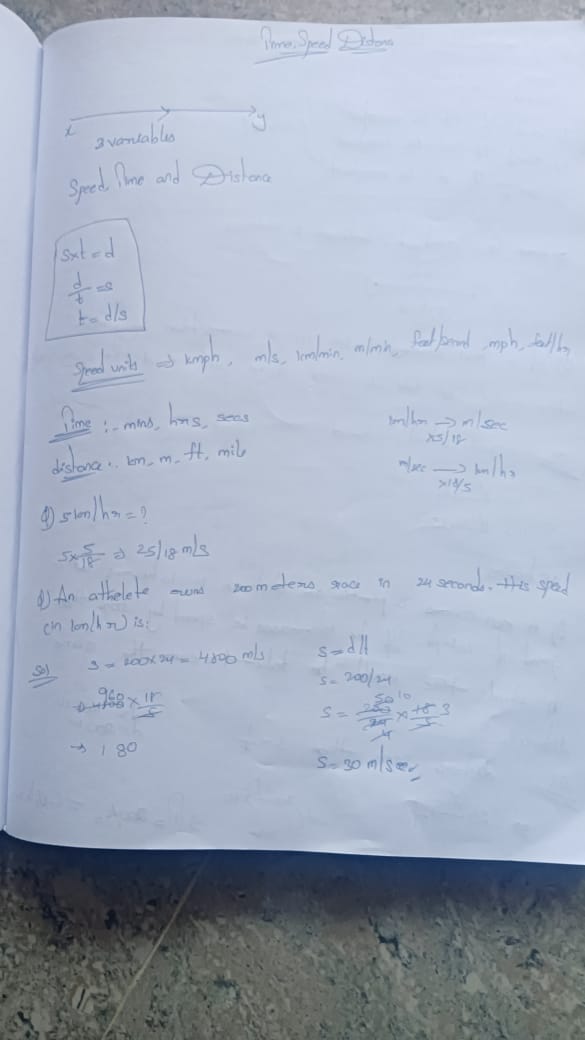 Time, Speed Distance
x y
3 variables
Speed, Time and Distance
s×t = d
d/t = s
t = d/s
Speed units ⇒ kmph, m/s, km/min, m/min, feet/second, mph, feet/hr
Time :- mins, hrs, secs
distance :. km, m, ft, mile
km/hr → m/sec
×5/18
m/sec → km/hr
×18/5
Q) 5 km/hr = ?
5×5/18 ⇒ 25/18 m/s
Q) An athelete runs 200 meters race in 24 seconds. His speed
(in km/hr) is:
Sol
s = 200×24 = 4800 m/s
960
4800 × 18/5
→ 180
s = d/t
s = 200/24
50 10
s = 200/24 × 18/5 3
4
s = 30 m/sec